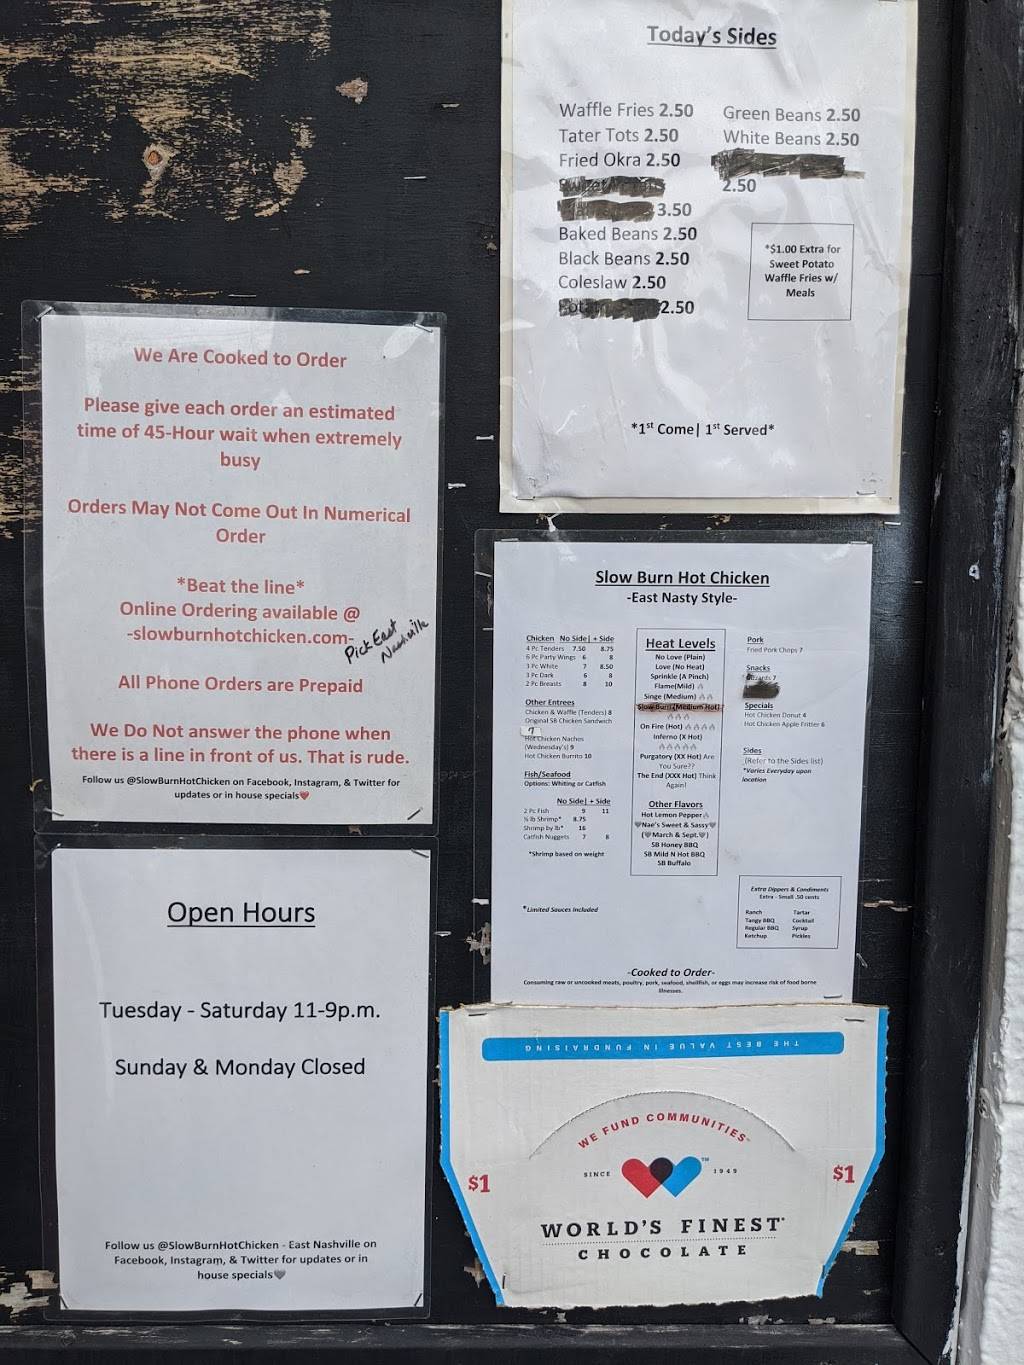 Today's Sides
Waffle Fries 2.50
Tater Tots 2.50
Fried Okra 2.50
3.50
Baked Beans 2.50
Black Beans 2.50
Coleslaw 2.50
2.50
Green Beans 2.50
White Beans 2.50
2.50
*$1.00 Extra for
Sweet Potato
Waffle Fries w/
Meals
*1st Come| 1st Served*
We Are Cooked to Order
Please give each order an estimated
time of 45-Hour wait when extremely
busy
Orders May Not Come Out In Numerical
Order
*Beat the line*
Online Ordering available @
-slowburnhotchicken.com-
Pick East
Nashville
All Phone Orders are Prepaid
We Do Not answer the phone when
there is a line in front of us. That is rude.
Follow us @SlowBurnHotChicken on Facebook, Instagram, & Twitter for
updates or in house specials❤
Slow Burn Hot Chicken
-East Nasty Style-
Chicken No Side| + Side
4 Pc Tenders 7.50 8.75
6 Pc Party Wings 6 8
3 Pc White 7 8.50
3 Pc Dark 6 8
2 Pc Breasts 8 10
Other Entrees
Chicken & Waffle (Tenders) 8
Original SB Chicken Sandwich
7
Hot Chicken Nachos
(Wednesday's) 9
Hot Chicken Burrito 10
Fish/Seafood
Options: Whiting or Catfish
No Side| + Side
2 Pc Fish 9 11
½ lb Shrimp* 8.75
Shrimp by lb* 16
Catfish Nuggets 7 8
*Shrimp based on weight
*Limited Sauces Included
Heat Levels
No Love (Plain)
Love (No Heat)
Sprinkle (A Pinch)
Flame(Mild) 🔥
Singe (Medium) 🔥🔥
Slow Burn (Medium Hot)
🔥🔥🔥
On Fire (Hot) 🔥🔥🔥🔥
Inferno (X Hot)
🔥🔥🔥🔥🔥
Purgatory (XX Hot) Are
You Sure??
The End (XXX Hot) Think
Again!
Other Flavors
Hot Lemon Pepper🔥
🖤Nae's Sweet & Sassy🖤
(🖤March & Sept.🖤)
SB Honey BBQ
SB Mild N Hot BBQ
SB Buffalo
Pork
Fried Pork Chops 7
Snacks
Gizzards 7
Specials
Hot Chicken Donut 4
Hot Chicken Apple Fritter 6
Sides
(Refer to the Sides list)
*Varies Everyday upon
location
Extra Dippers & Condiments
Extra - Small .50 cents
Ranch Tartar
Tangy BBQ Cocktail
Regular BBQ Syrup
Ketchup Pickles
-Cooked to Order-
Consuming raw or uncooked meats, poultry, pork, seafood, shellfish, or eggs may increase risk of food borne
illnesses.
Open Hours
Tuesday - Saturday 11-9p.m.
Sunday & Monday Closed
Follow us @SlowBurnHotChicken - East Nashville on
Facebook, Instagram, & Twitter for updates or in
house specials🖤
THE BEST VALUE IN FUNDRAISING
WE FUND COMMUNITIES™
SINCE 1949
$1 $1
WORLD'S FINEST®
CHOCOLATE